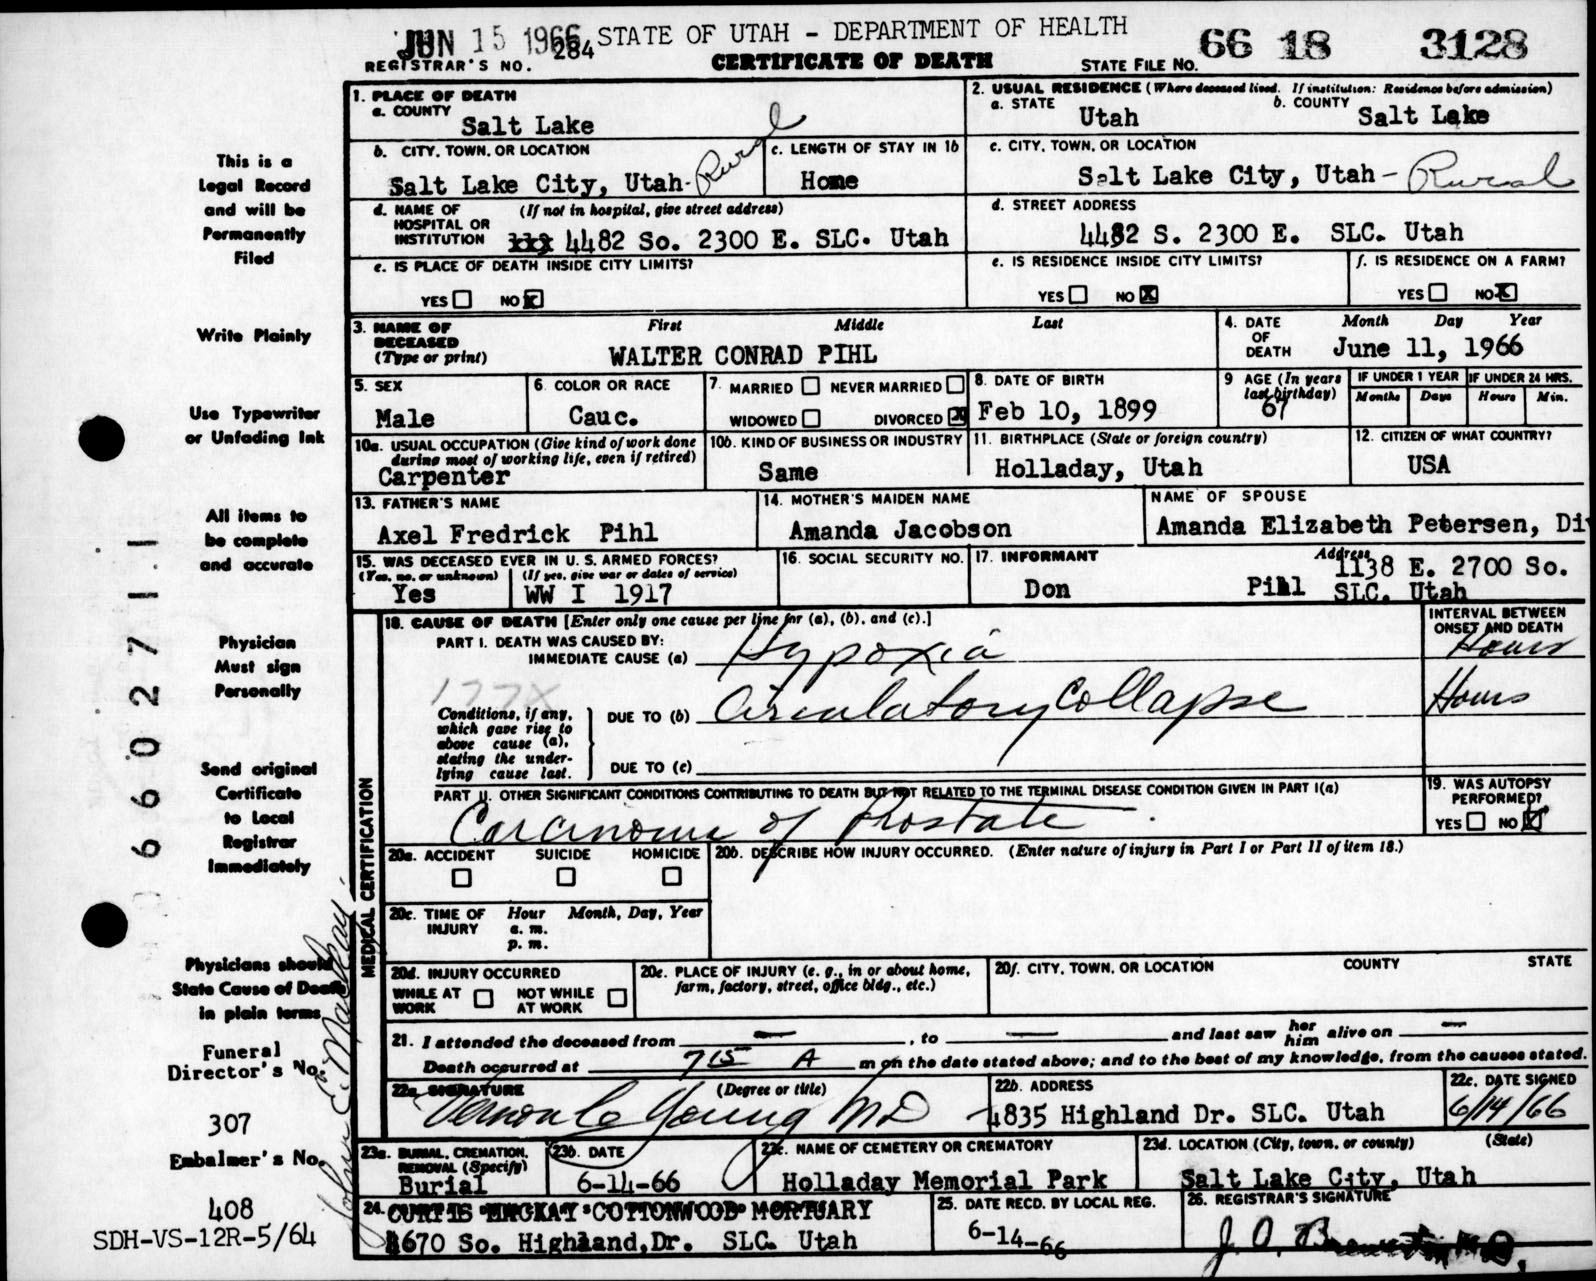 JUN 15 1966
284 STATE OF UTAH - DEPARTMENT OF HEALTH 66 18 3128
REGISTRAR'S NO. CERTIFICATE OF DEATH STATE FILE NO.
1. PLACE OF DEATH
a. COUNTY
Salt Lake
2. USUAL RESIDENCE (Where deceased lived. If institution: Residence before admission)
a. STATE b. COUNTY
Utah Salt Lake
b. CITY, TOWN, OR LOCATION
Salt Lake City, Utah- Rural
c. LENGTH OF STAY IN 1b
Home
c. CITY, TOWN, OR LOCATION
Salt Lake City, Utah - Rural
d. NAME OF HOSPITAL OR INSTITUTION (If not in hospital, give street address)
4482 So. 2300 E. SLC. Utah
d. STREET ADDRESS
4482 S. 2300 E. SLC. Utah
e. IS PLACE OF DEATH INSIDE CITY LIMITS?
YES NO X
e. IS RESIDENCE INSIDE CITY LIMITS?
YES NO X
f. IS RESIDENCE ON A FARM?
YES NO X
3. NAME OF DECEASED (Type or print)
First Middle Last
WALTER CONRAD PIHL
4. DATE OF DEATH
Month Day Year
June 11, 1966
5. SEX
Male
6. COLOR OR RACE
Cauc.
7. MARRIED NEVER MARRIED
WIDOWED DIVORCED X
8. DATE OF BIRTH
Feb 10, 1899
9 AGE (In years last birthday)
67
IF UNDER 1 YEAR IF UNDER 24 HRS.
Months Days Hours Min.
10a. USUAL OCCUPATION (Give kind of work done during most of working life, even if retired)
Carpenter
10b. KIND OF BUSINESS OR INDUSTRY
Same
11. BIRTHPLACE (State or foreign country)
Holladay, Utah
12. CITIZEN OF WHAT COUNTRY?
USA
13. FATHER'S NAME
Axel Fredrick Pihl
14. MOTHER'S MAIDEN NAME
Amanda Jacobson
NAME OF SPOUSE
Amanda Elizabeth Petersen, Di
15. WAS DECEASED EVER IN U. S. ARMED FORCES?
(Yes, no, or unknown) (If yes, give war or dates of service)
Yes WW I 1917
16. SOCIAL SECURITY NO.
17. INFORMANT Address
Don Pihl 1138 E. 2700 So.
SLC. Utah
MEDICAL CERTIFICATION
18. CAUSE OF DEATH [Enter only one cause per line for (a), (b), and (c).]
INTERVAL BETWEEN ONSET AND DEATH
PART I. DEATH WAS CAUSED BY:
IMMEDIATE CAUSE (a) Hypoxia Hours
177X
Conditions, if any, which gave rise to above cause (a), stating the underlying cause last.
DUE TO (b) Circulatory Collapse Hours
DUE TO (c)
PART II. OTHER SIGNIFICANT CONDITIONS CONTRIBUTING TO DEATH BUT NOT RELATED TO THE TERMINAL DISEASE CONDITION GIVEN IN PART I(a)
Carcinoma of Prostate
19. WAS AUTOPSY PERFORMED?
YES NO X
20a. ACCIDENT SUICIDE HOMICIDE
20b. DESCRIBE HOW INJURY OCCURRED. (Enter nature of injury in Part I or Part II of item 18.)
20c. TIME OF INJURY Hour Month, Day, Year
a. m.
p. m.
20d. INJURY OCCURRED
WHILE AT WORK NOT WHILE AT WORK
20e. PLACE OF INJURY (e. g., in or about home, farm, factory, street, office bldg., etc.)
20f. CITY, TOWN, OR LOCATION COUNTY STATE
21. I attended the deceased from — , to — and last saw her him alive on —
Death occurred at 715 A m on the date stated above; and to the best of my knowledge, from the causes stated.
22a SIGNATURE (Degree or title)
Vernon C Young MD
22b. ADDRESS
4835 Highland Dr. SLC. Utah
22c. DATE SIGNED
6/14/66
23a. BURIAL, CREMATION, REMOVAL (Specify)
Burial
23b. DATE
6-14-66
23c. NAME OF CEMETERY OR CREMATORY
Holladay Memorial Park
23d. LOCATION (City, town, or county) (State)
Salt Lake City, Utah
24. COTTONWOOD MORTUARY
4670 So. Highland, Dr. SLC. Utah
25. DATE RECD. BY LOCAL REG.
6-14-66
26. REGISTRAR'S SIGNATURE
J. O.
This is a
Legal Record
and will be
Permanently
Filed
Write Plainly
Use Typewriter
or Unfading Ink
All items to
be complete
and accurate
Physician
Must sign
Personally
Send original
Certificate
to Local
Registrar
Immediately
Physicians should
State Cause of Death
in plain terms
Funeral
Director's No.
307
Embalmer's No.
408
SDH-VS-12R-5/64